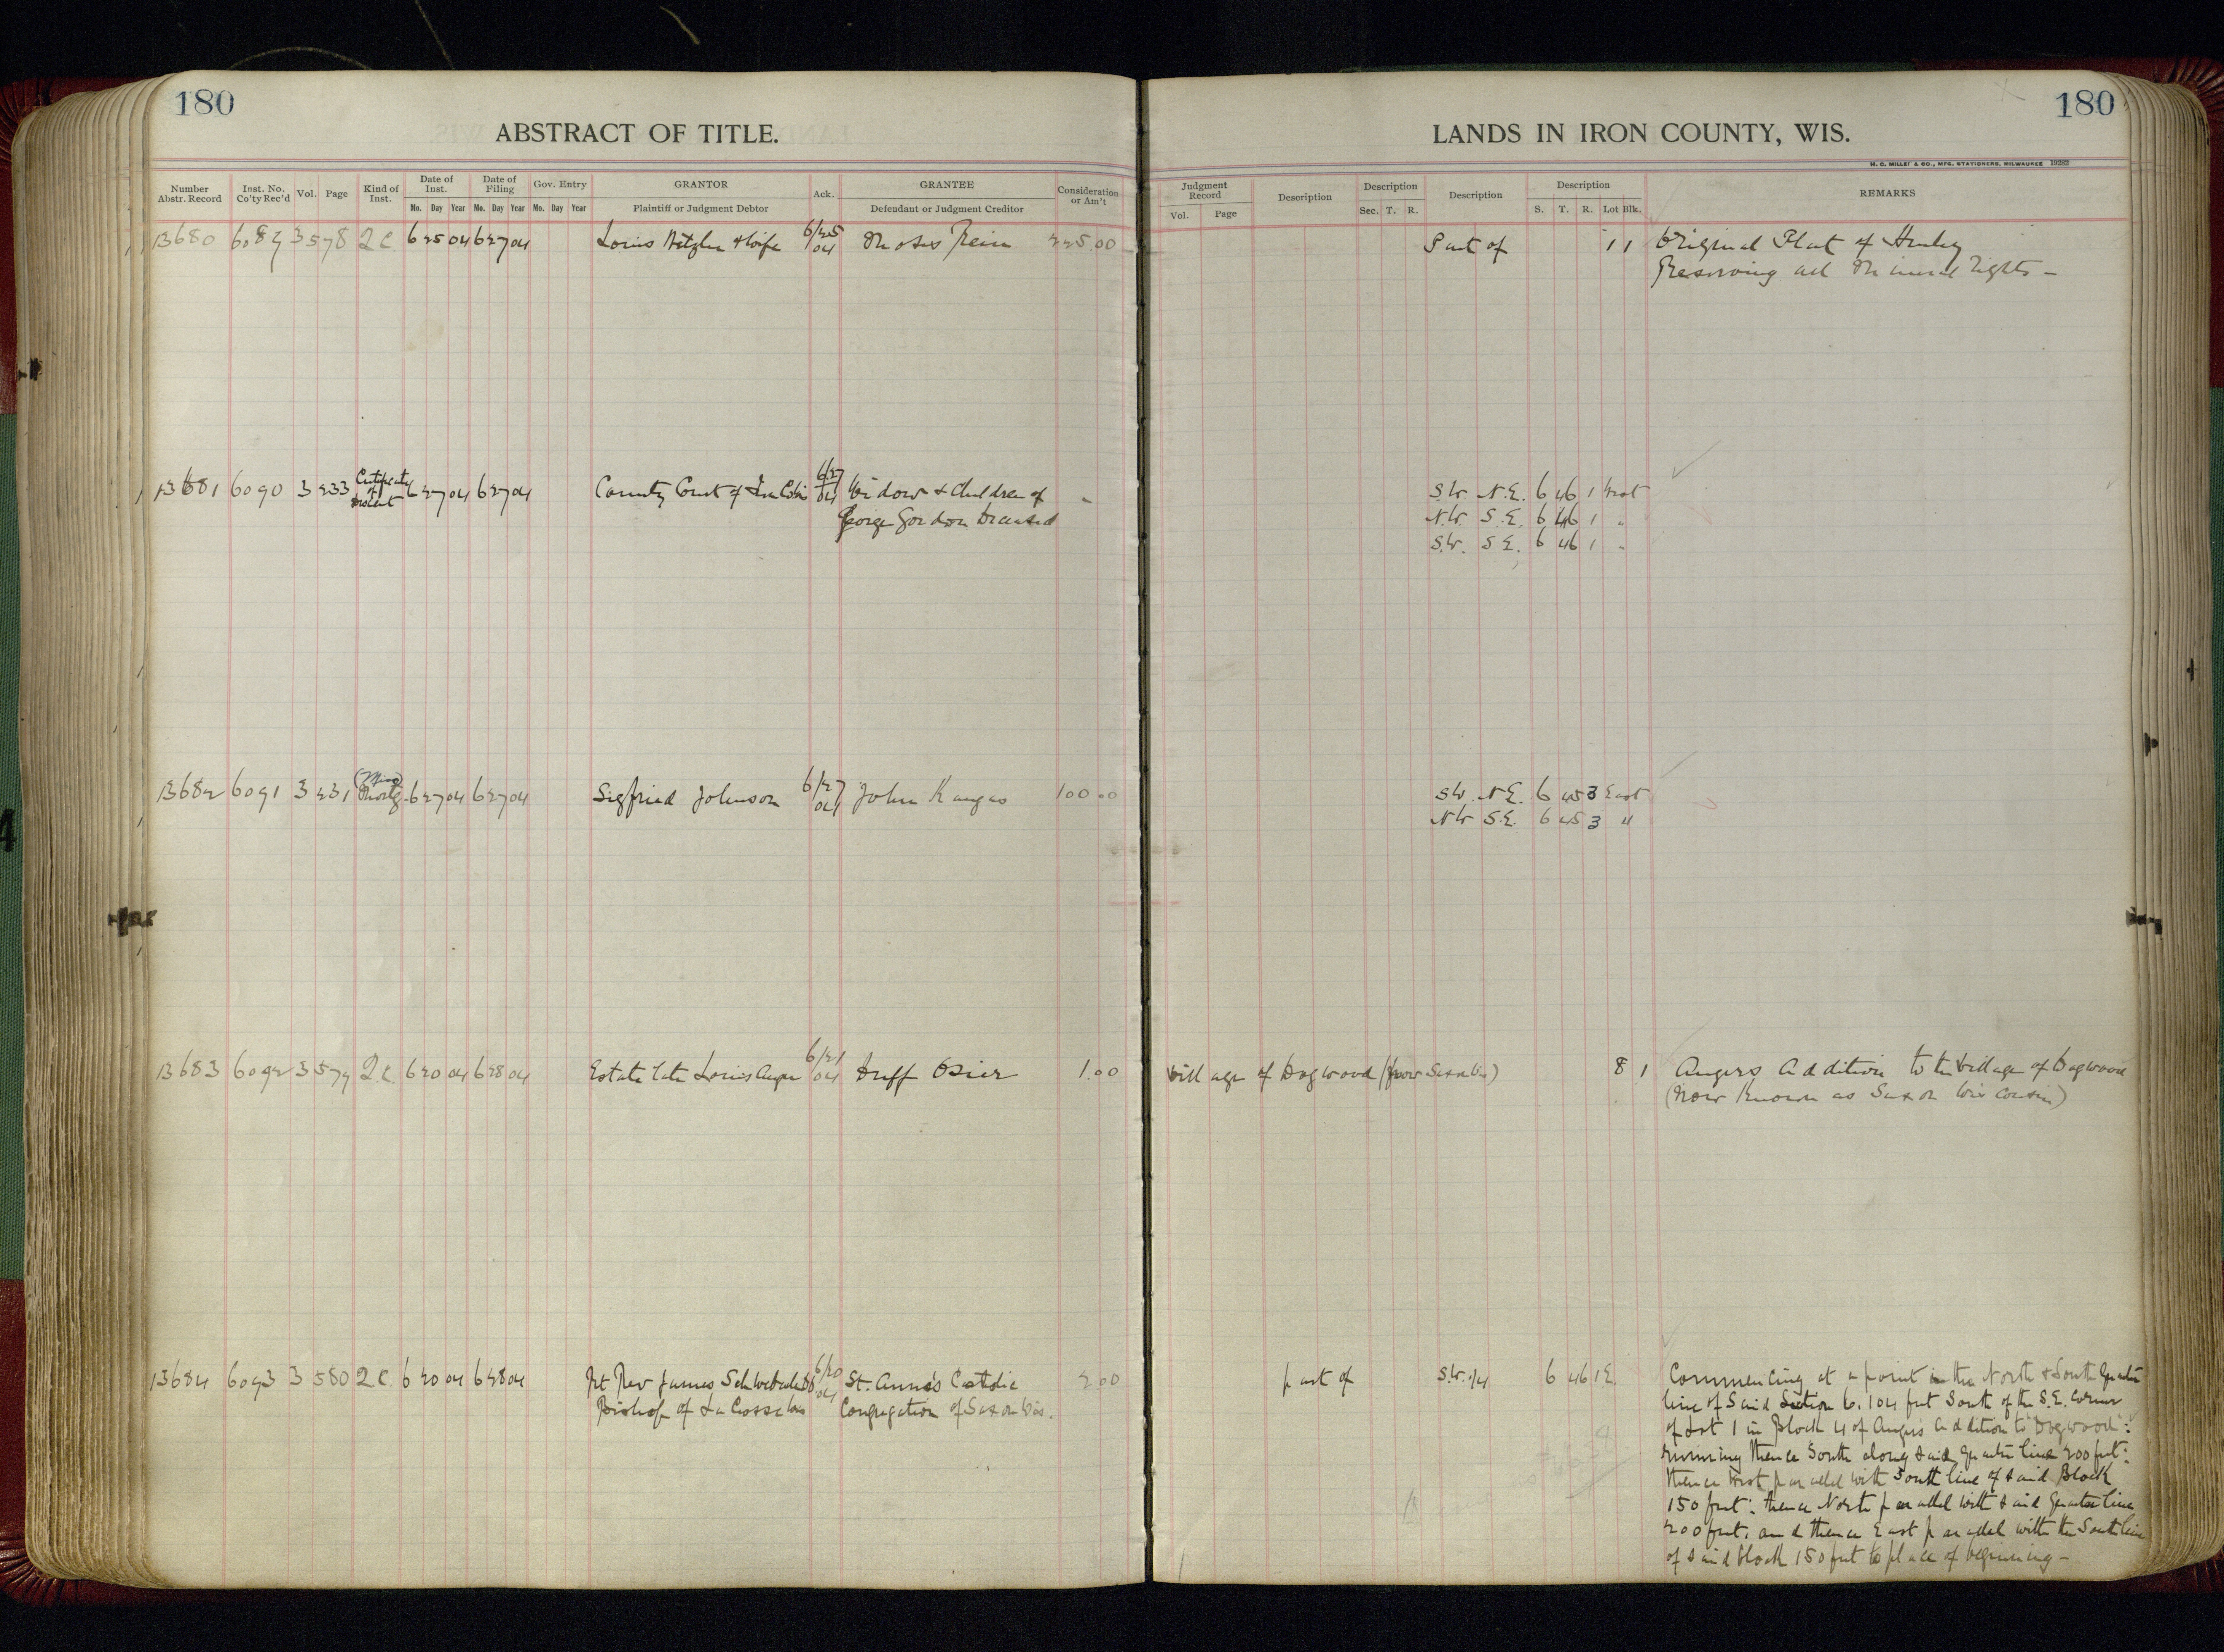 180
ABSTRACT OF TITLE.
Number Abstr. Record | Inst. No. Co'ty Rec'd | Vol. | Page | Kind of Inst. | Date of Inst. Mo. Day Year | Date of Filing Mo. Day Year | Gov. Entry Mo. Day Year | GRANTOR Plaintiff or Judgment Debtor | Ack. | GRANTEE Defendant or Judgment Creditor | Consideration or Am't
13680 6089 3 578 Q.C. 6 25 04 6 27 04 Louis & Wife 6/25 04 Moses 225.00
13681 6090 3 233 Certificate of Descent 6 27 04 6 27 04 County Court of Iron Co Wis 6/27 04 Widow & Children of -
George Gordon Deceased
13682 6091 3 231 (Misc) Mortg. 6 27 04 6 27 04 Sigfried Johnson 6/27 04 John Kangas 100.00
13683 6092 3 579 Q.C. 6 20 04 6 28 04 Estate late Louis Anger 6/21 04 Duff Osier 1.00
13684 6093 3 580 Q.C. 6 20 04 6 28 04 Rt Rev James Schwebach 6/20 04 St. Anne's Catholic 2.00
Bishop of La Crosse Wis Congregation of Saxon Wis.
180
LANDS IN IRON COUNTY, WIS.
H. C. MILLER & CO., MFG. STATIONERS, MILWAUKEE 19282
Judgment Record Vol. Page | Description | Description Sec. T. R. | Description | Description S. T. R. Lot Blk. | REMARKS
Part of 1 1 Original Plat of Hurley
Reserving all Mineral rights -
S.W. N.E. 6 46 1 West
N.W. S.E. 6 46 1 "
S.W. S.E. 6 46 1 "
SW. N.E. 6 45 3 East
NW S.E. 6 45 3 "
Village of Dogwood (now Saxon Wis) 8 1 Angers Addition to the Village of Dogwood
(Now Known as Saxon Wisconsin)
part of S.W. 1/4 6 46 1 E. Commencing at a point in the North & South Quarter
line of Said Section 6. 104 feet South of the S.E. corner
of Lot 1 in Block 4 of Angers addition to "Dogwood":
running thence South along said quarter line 200 feet:
thence West parallel with South line of said Block
150 feet: thence North parallel with said Quarter line
200 feet. and thence East parallel with the South line
of said block 150 feet to place of beginning -